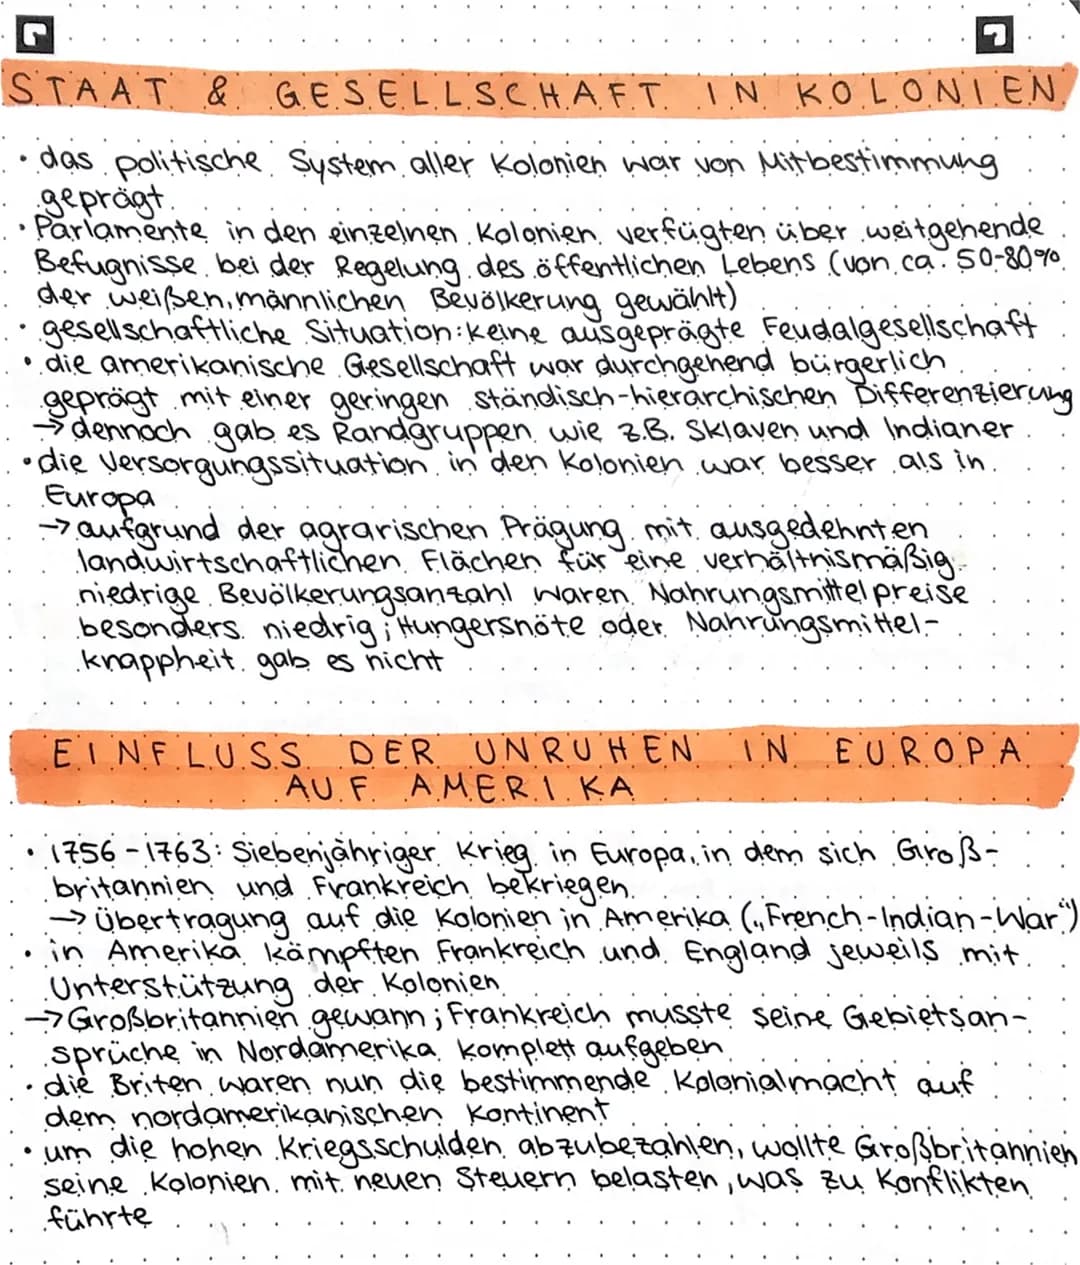 STAAT & GESELLSCHAFT IN KOLONIEN
• das politische System aller Kolonien war von Mitbestimmung
geprägt
• Parlamente in den einzelnen Kolonien verfügten über weitgehende
Befugnisse bei der Regelung des öffentlichen Lebens (von ca. 50-80%
der weißen, männlichen Bevölkerung gewählt)
• gesellschaftliche Situation: keine ausgeprägte Feudalgesellschaft
• die amerikanische Gesellschaft war durchgehend bürgerlich
geprägt mit einer geringen ständisch-hierarchischen Differenzierung
→ dennoch gab es Randgruppen wie z.B. Sklaven und Indianer
• die Versorgungssituation in den Kolonien war besser als in
Europa
→ aufgrund der agrarischen Prägung mit ausgedehnten
landwirtschaftlichen Flächen für eine verhältnismäßig
niedrige Bevölkerungsanzahl waren Nahrungsmittelpreise
besonders niedrig; Hungersnöte oder Nahrungsmittel-
knappheit gab es nicht
EINFLUSS DER UNRUHEN IN EUROPA
AUF AMERIKA
• 1756-1763: Siebenjähriger Krieg in Europa, in dem sich Groß-
britannien und Frankreich bekriegen
→ Übertragung auf die Kolonien in Amerika („French-Indian-War“)
• in Amerika kämpften Frankreich und England jeweils mit
Unterstützung der Kolonien
→ Großbritannien gewann; Frankreich musste seine Gebietsan-
sprüche in Nordamerika komplett aufgeben
• die Briten waren nun die bestimmende Kolonialmacht auf
dem nordamerikanischen Kontinent
• um die hohen Kriegsschulden abzubezahlen, wollte Großbritannien
seine Kolonien mit neuen Steuern belasten, was zu Konflikten
führte